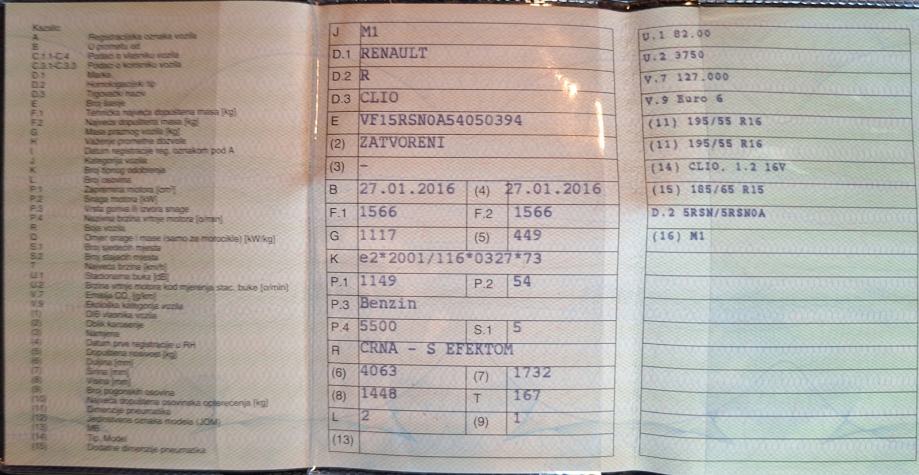 Kazalo:
A Registracijska oznaka vozila
B U prometu od
C.1.1-C.4 Podaci o vlasniku vozila
C.3.1-C.3.3 Podaci o korisniku vozila
D.1 Marka
D.2 Homologacijski tip
D.3 Trgovački naziv
E Broj šasije
F.1 Tehnička najveća dopuštena masa [kg]
F.2 Najveća dopuštena masa [kg]
G Masa praznog vozila [kg]
H Važenje prometne dozvole
I Datum registracije reg. oznakom pod A
J Kategorija vozila
K Broj tipnog odobrenja
L Broj osovina
P.1 Zapremina motora [cm³]
P.2 Snaga motora [kW]
P.3 Vrsta goriva ili izvora snage
P.4 Nazivna brzina vrtnje motora [o/min]
R Boja vozila
Q Omjer snage i mase (samo za motocikle) [kW/kg]
S.1 Broj sjedećih mjesta
S.2 Broj stajaćih mjesta
T Najveća brzina [km/h]
U.1 Stacionarna buka [dB]
U.2 Brzina vrtnje motora kod mjerenja stac. buke [o/min]
V.7 Emisija CO₂ [g/km]
V.9 Ekološka kategorija vozila
(1) OIB vlasnika vozila
(2) Oblik karoserije
(3) Namjena
(4) Datum prve registracije u RH
(5) Dopuštena nosivost [kg]
(6) Duljina [mm]
(7) Širina [mm]
(8) Visina [mm]
(9) Broj pogonskih osovina
(10) Najveća dopuštena osovinska opterećenja [kg]
(11) Dimenzije pneumatika
(12) Jedinstvena oznaka modela (JOM)
(13) MB
(14) Tip, Model
(15) Dodatne dimenzije pneumatika
J M1
D.1 RENAULT
D.2 R
D.3 CLIO
E VF15RSN0A54050394
(2) ZATVORENI
(3) –
B 27.01.2016 (4) 27.01.2016
F.1 1566 F.2 1566
G 1117 (5) 449
K e2*2001/116*0327*73
P.1 1149 P.2 54
P.3 Benzin
P.4 5500 S.1 5
R CRNA - S EFEKTOM
(6) 4063 (7) 1732
(8) 1448 T 167
L 2 (9) 1
(13)
U.1 82.00
U.2 3750
V.7 127.000
V.9 Euro 6
(11) 195/55 R16
(11) 195/55 R16
(14) CLIO, 1.2 16V
(15) 185/65 R15
D.2 5RSN/5RSN0A
(16) M1